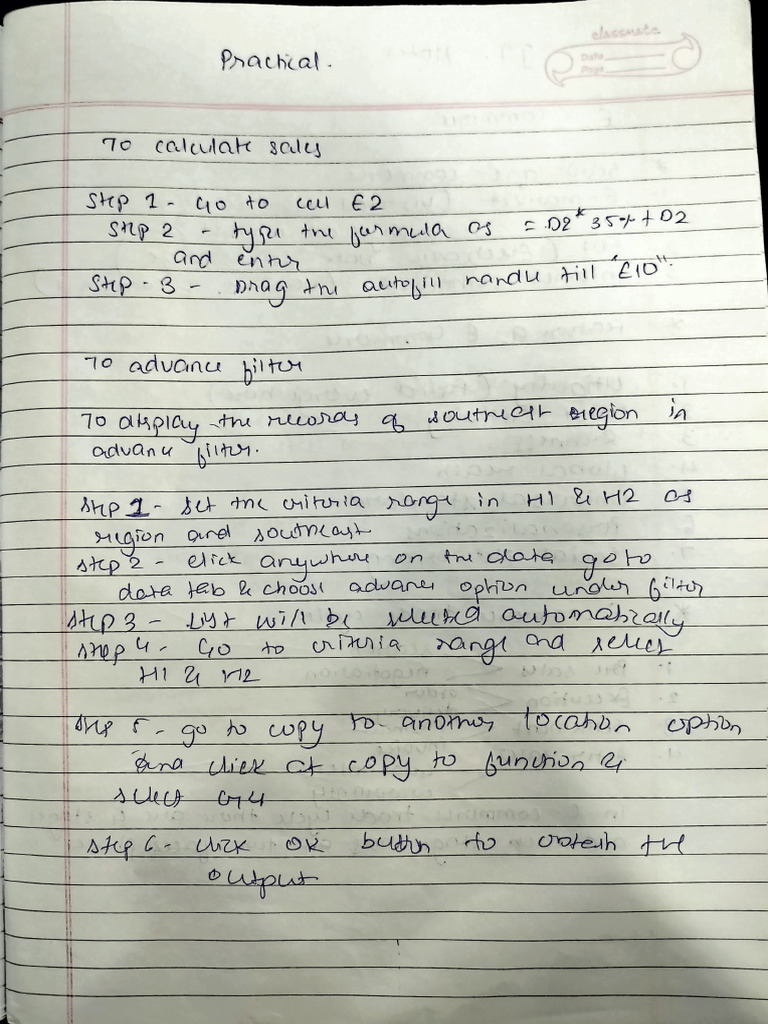 classmate
Date
Page
Practical.
To calculate sales
Step 1 - Go to cell E2
Step 2 - type the formula as = D2*35%+D2
and enter
Step - 3 - Drag the autofill handle till "E10".
To advance filter
To display the records of southeast region in
advance filter.
Step 1 - Set the criteria range in H1 & H2 as
region and southeast
Step 2 - click anywhere on the data go to
data tab & choose advance option under filter
Step 3 - List will be selected automatically
Step 4 - Go to criteria range and select
H1 & H2
Step 5 - go to copy to another location option
and click at copy to function &
select G4
Step 6 - click OK button to obtain the
output